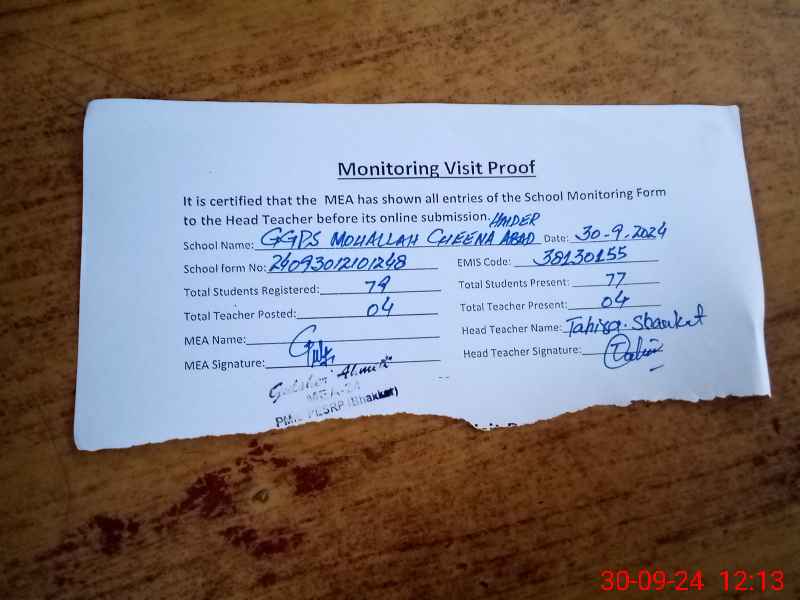 Monitoring Visit Proof
It is certified that the MEA has shown all entries of the School Monitoring Form
to the Head Teacher before its online submission.
HAIDER
School Name: GGPS MOHALLAH CHEENA ABAD Date: 30-9-2024
School form No: 24093012101248 EMIS Code: 38130155
Total Students Registered: 79 Total Students Present: 77
Total Teacher Posted: 04 Total Teacher Present: 04
MEA Name: Head Teacher Name: Tahira Shaukat
MEA Signature: Head Teacher Signature:
Ahmed
MEA-24
PESRP (Bhakkar)
30-09-24 12:13